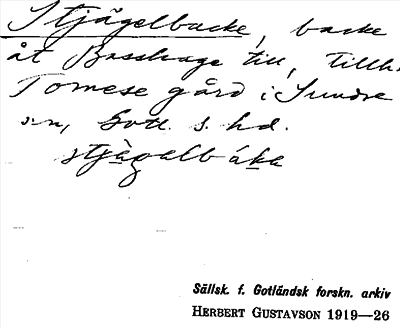 Stjägelbacke, backe
åt Basshage till, tillh.
Tomese gård i Sundre
s:n, Gotl. s. hd.
stjägalbáka
Sällsk. f. Gotländsk forskn. arkiv
HERBERT GUSTAVSON 1919—26